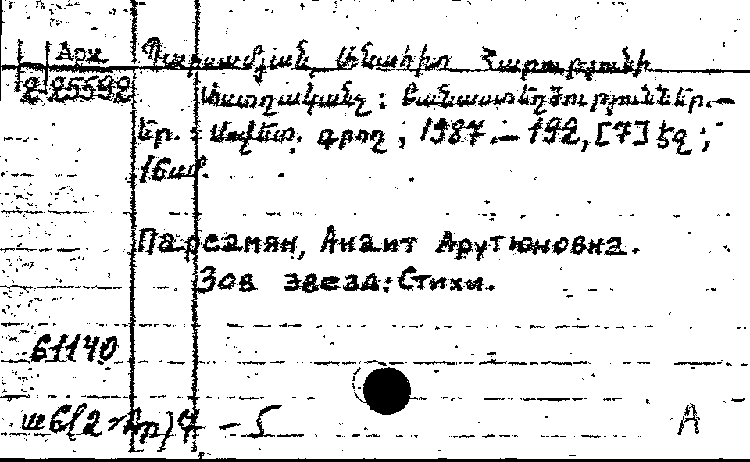 Арх
Պարսամյան, Անահիտ Հարությունի
2 25592
Աստղականչ : Բանաստեղծություններ.—
Եր. : Սովետ. գրող, 1987.— 192, [7] էջ ;
16սմ.
Парсамян, Анаит Арутюновна.
Зов звезд: Стихи.
61140
5
А